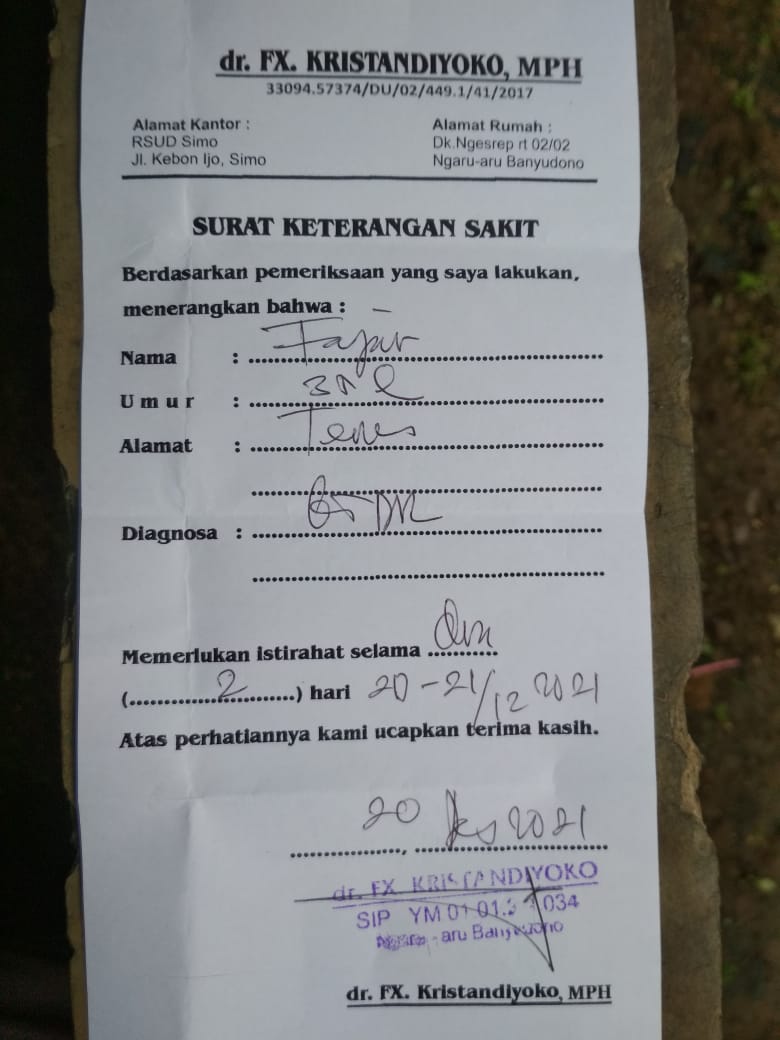 dr. FX. KRISTANDIYOKO, MPH
33094.57374/DU/02/449.1/41/2017
Alamat Kantor :
RSUD Simo
Jl. Kebon Ijo, Simo
Alamat Rumah :
Dk.Ngesrep rt 02/02
Ngaru-aru Banyudono
SURAT KETERANGAN SAKIT
Berdasarkan pemeriksaan yang saya lakukan,
menerangkan bahwa :
Nama : Fajar
Umur :
Alamat :
Diagnosa :
Memerlukan istirahat selama
(2) hari 20-21/12 2021
Atas perhatiannya kami ucapkan terima kasih.
20 Des 2021
dr. FX KRISTANDIYOKO
SIP YM 01 01. 034
-aru Banyudono
dr. FX. Kristandiyoko, MPH